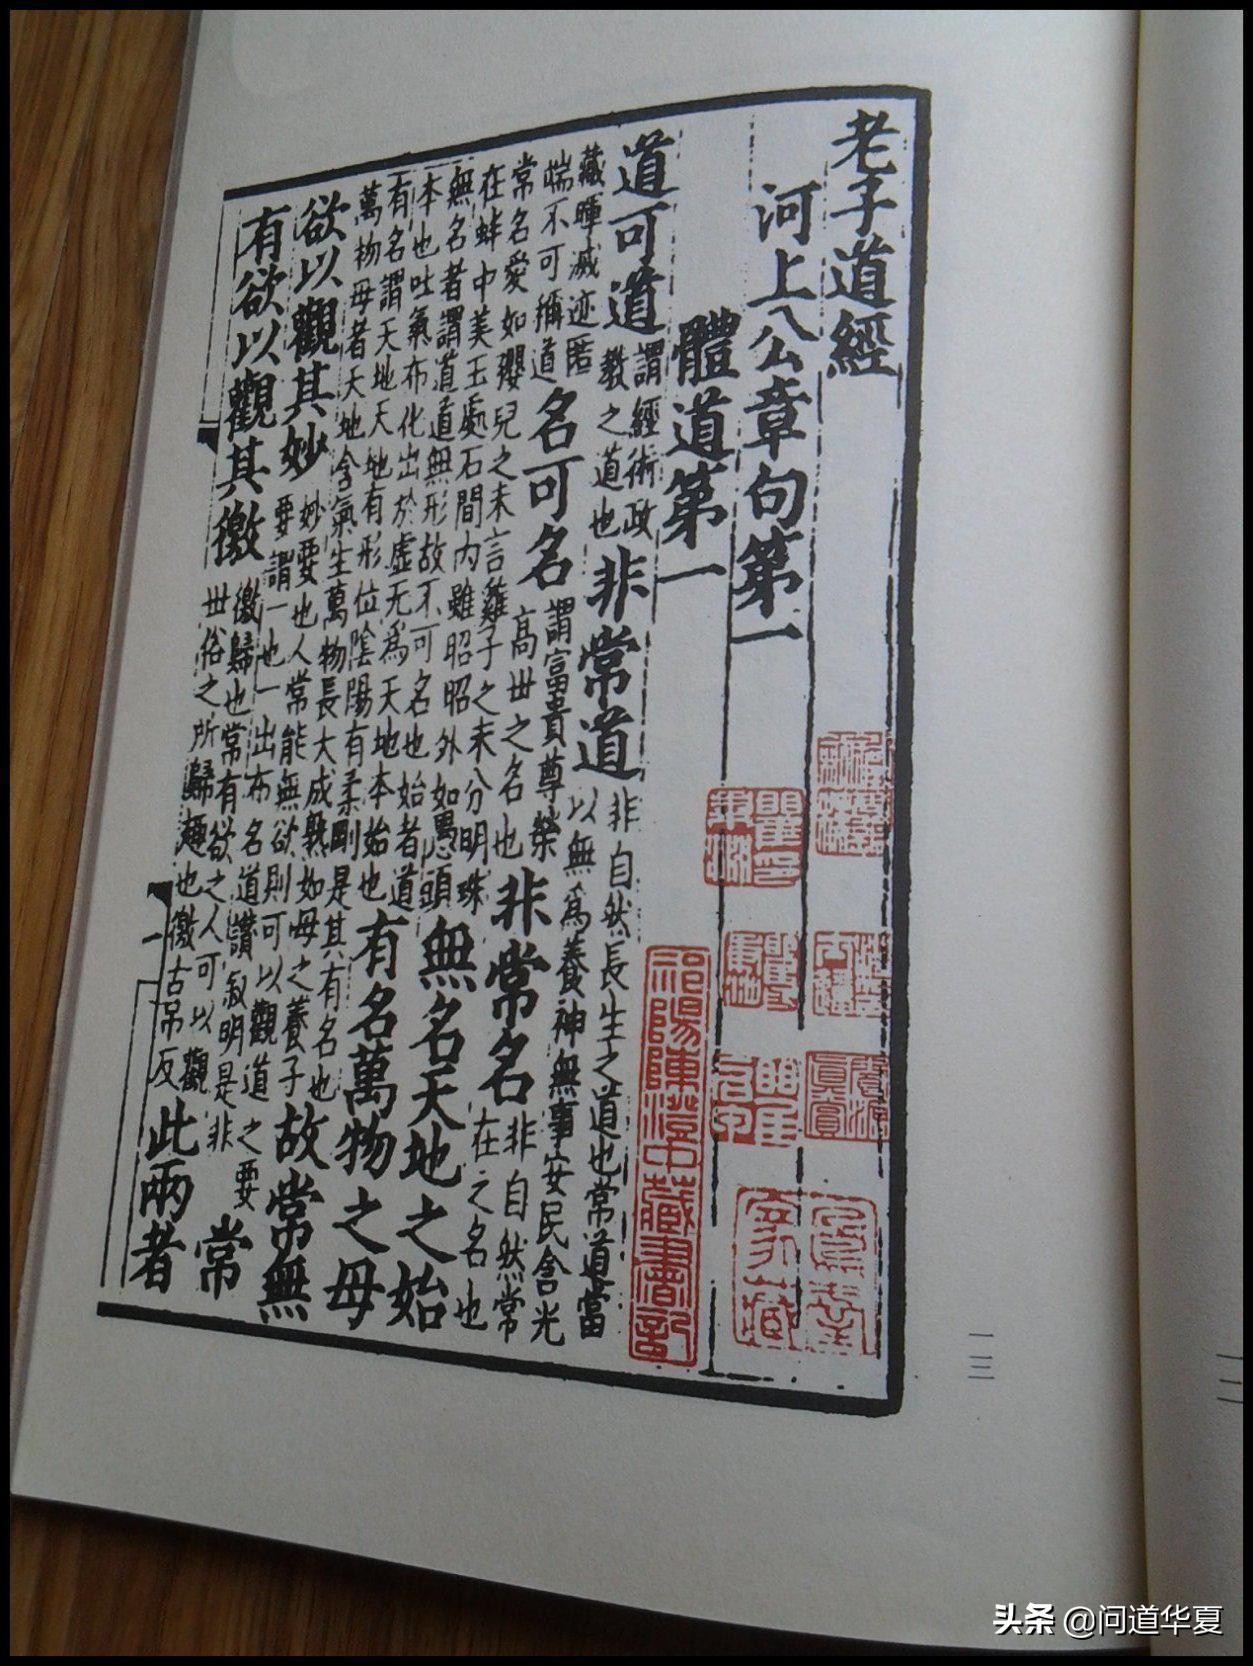 老子道經
河上公章句第一
體道第一
道可道 謂經術政教之道也 非常道 非自然長生之道也常道當以無為養神無事安民含光
藏暉滅迹匿端不可稱道 名可名 謂富貴尊榮高丗之名也 非常名 非自然常在之名也
常名愛如孾兒之未言雞子之未分明珠在蚌中美玉處石間內雖昭昭外如愚頭 無名天地之始
無名者謂道道無形故不可名也始者道本也吐氣布化出於虛无為天地本始也 有名萬物之母
有名謂天地天地有形位陰陽有柔剛是其有名也萬物母者天地含氣生萬物長大成熟如母之養子 故常無
欲以觀其妙 妙要也人常能無欲則可以觀道之要要謂一也一出布名道讚叙明是非 常
有欲以觀其徼 徼歸也常有欲之人可以觀丗俗之所歸趣也徼古吊反 此兩者
一
祁陽陳澄中藏書記
一三
一二
头条 @问道华夏